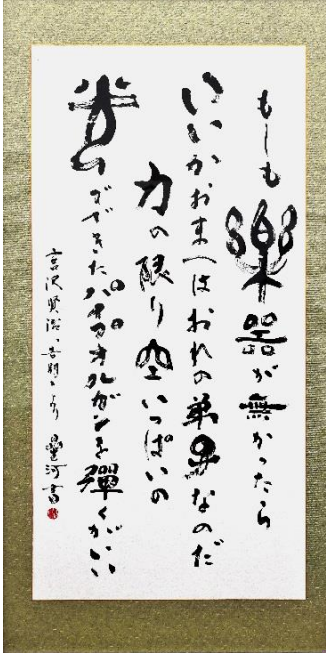 もしも楽器が無かったら
いいかおまへはおれの弟子なのだ
力の限り空いっぱいの
光でできたパイプオルガンを弾くがいい
宮沢賢治「告別」より 星河書